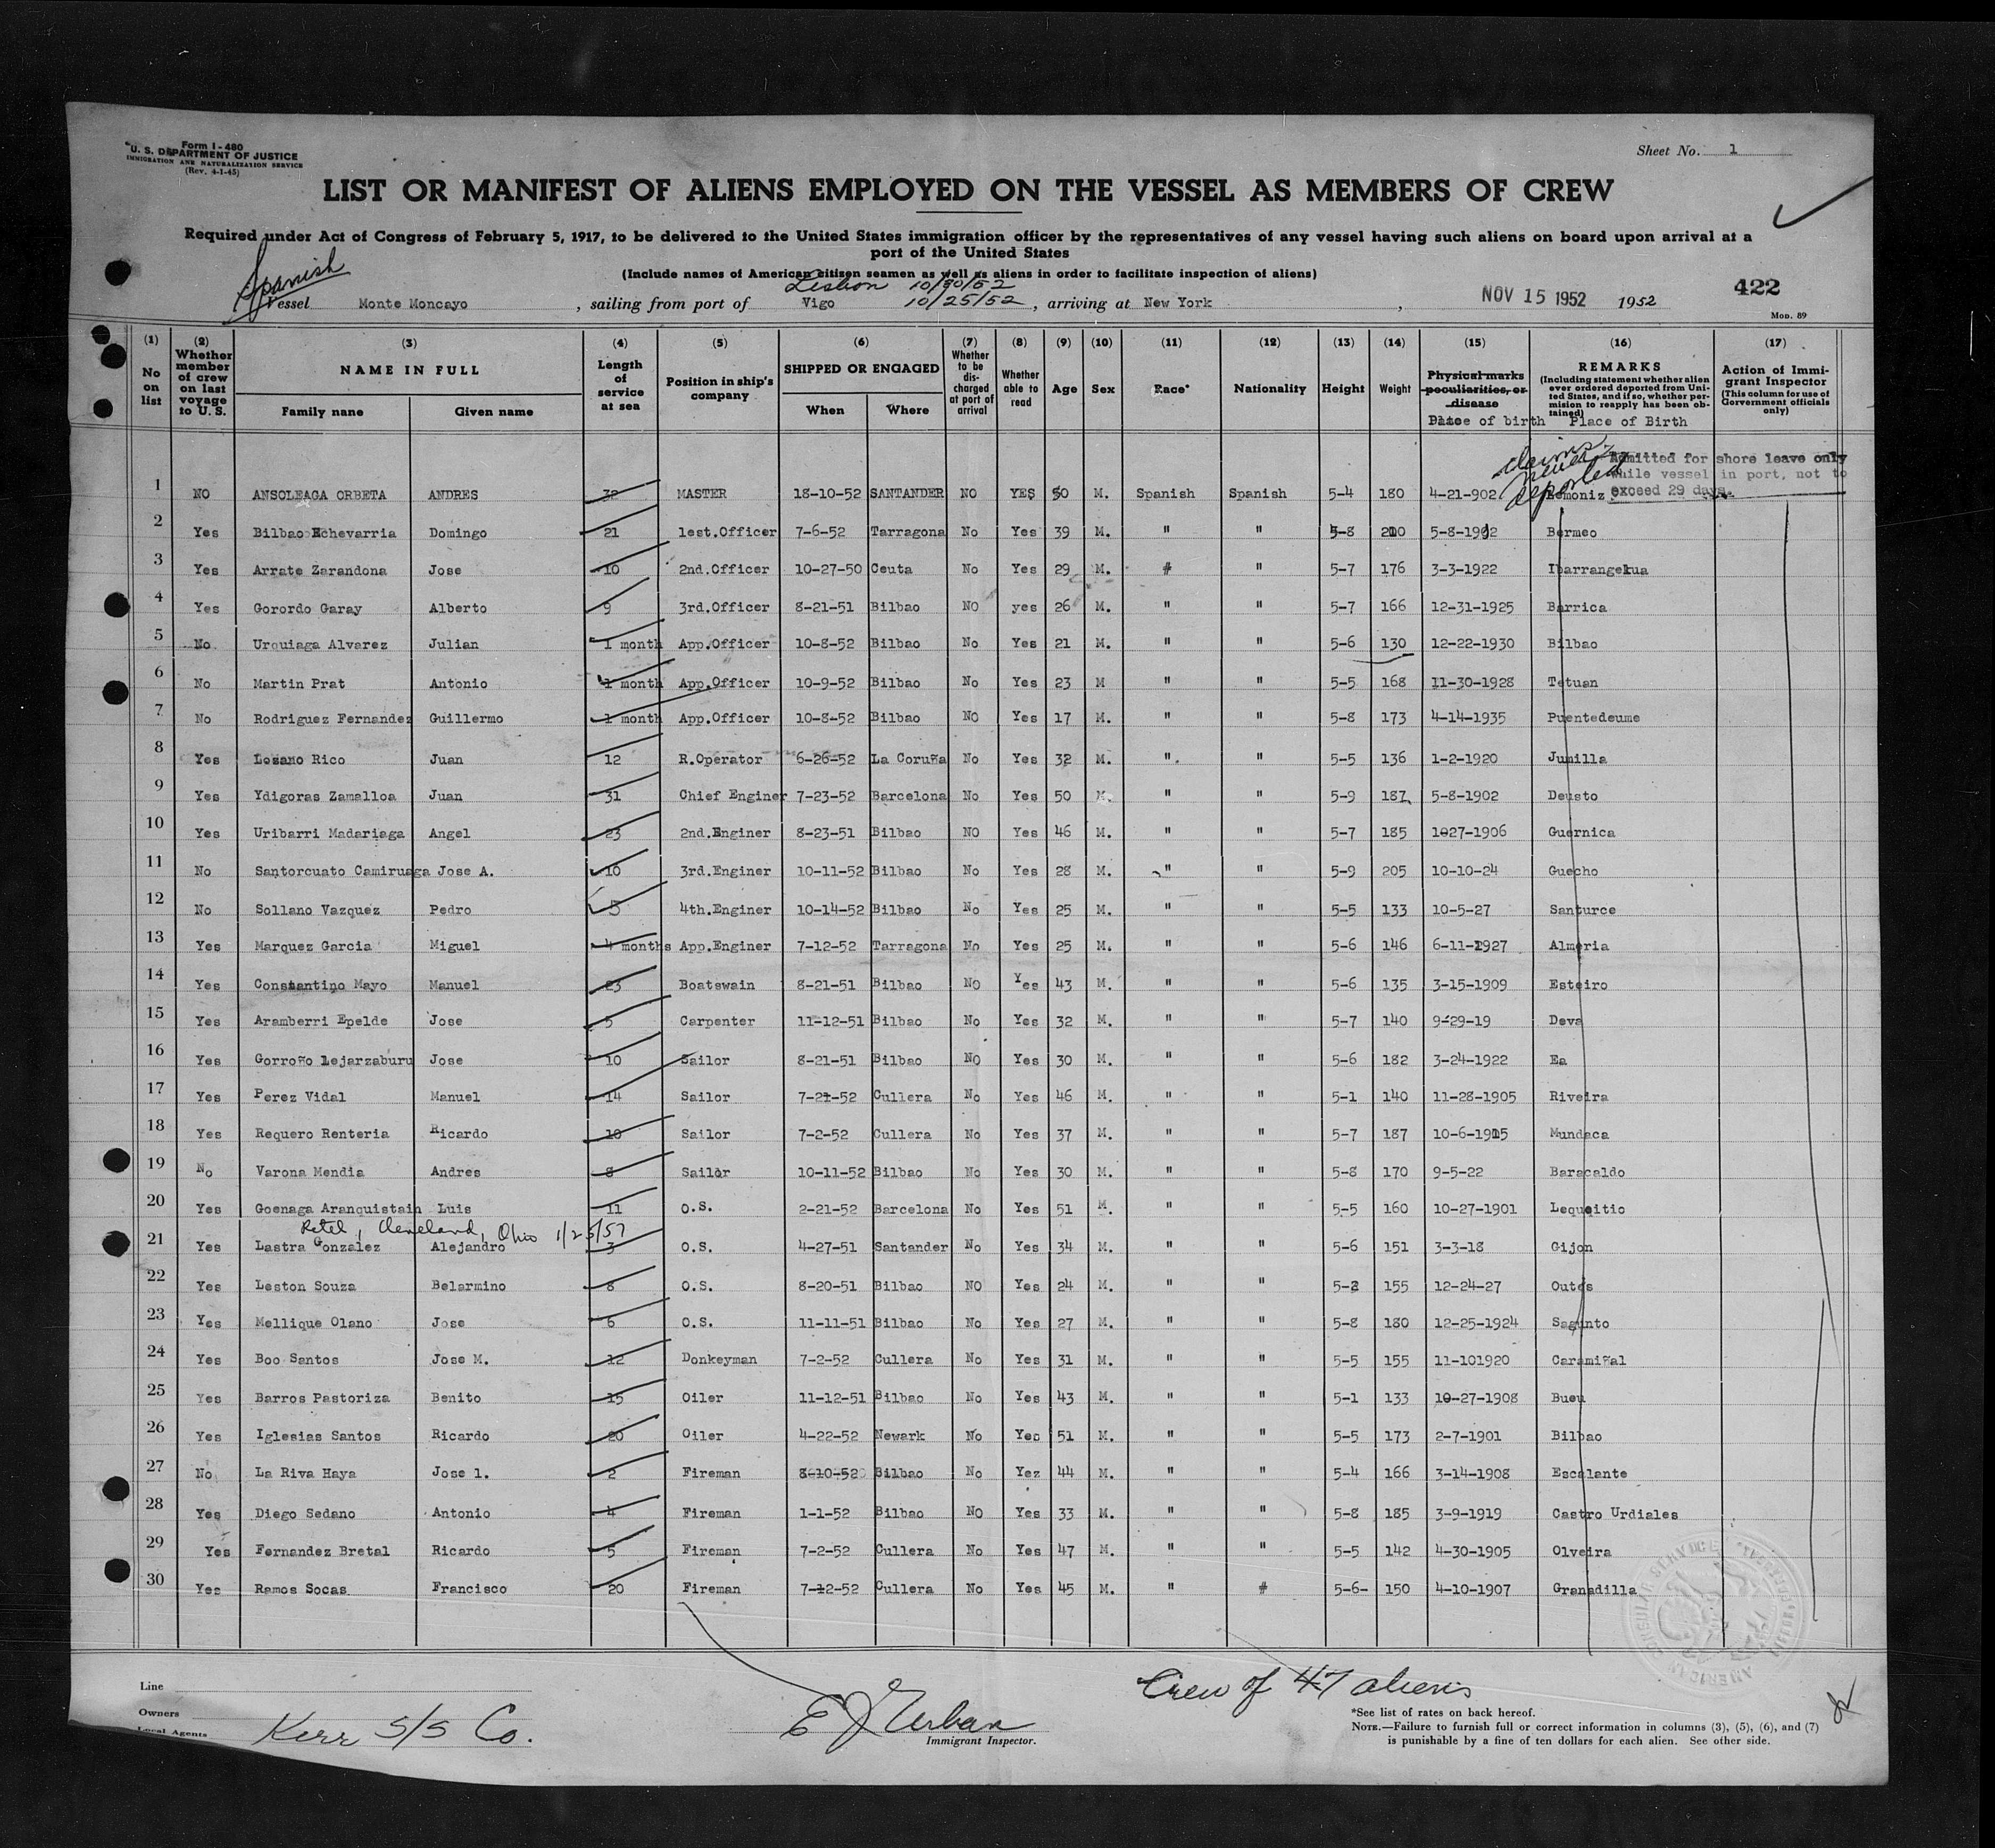 Form I-480
U. S. DEPARTMENT OF JUSTICE
IMMIGRATION AND NATURALIZATION SERVICE
(Rev. 4-1-45)
Sheet No. 1
LIST OR MANIFEST OF ALIENS EMPLOYED ON THE VESSEL AS MEMBERS OF CREW
Required under Act of Congress of February 5, 1917, to be delivered to the United States immigration officer by the representatives of any vessel having such aliens on board upon arrival at a
port of the United States
(Include names of American citizen seamen as well as aliens in order to facilitate inspection of aliens)
Spanish
Lisbon 10/30/52
422
Vessel Monte Moncayo , sailing from port of Vigo 10/25/52 , arriving at New York , NOV 15 1952 1952
Mod. 89
(1) (2) (3) (4) (5) (6) (7) (8) (9) (10) (11) (12) (13) (14) (15) (16) (17)
No on list
Whether member of crew on last voyage to U. S.
NAME IN FULL
Family name Given name
Length of service at sea
Position in ship's company
SHIPPED OR ENGAGED
When Where
Whether to be discharged at port of arrival
Whether able to read
Age
Sex
Race*
Nationality
Height
Weight
Physical marks peculiarities, or disease
Date of birth
REMARKS
(Including statement whether alien ever ordered deported from United States, and if so, whether permision to reapply has been obtained)
Place of Birth
Action of Immigrant Inspector
(This column for use of Government officials only)
claims never deported
Admitted for shore leave only
while vessel in port, not to
exceed 29 days.
1 NO ANSOLEAGA ORBETA ANDRES 32 MASTER 18-10-52 SANTANDER NO YES 50 M. Spanish Spanish 5-4 180 4-21-902 Lemoniz
2 Yes Bilbao Echevarria Domingo 21 1est.Officer 7-6-52 Tarragona No Yes 39 M. " " 5-8 210 5-8-1912 Bermeo
3 Yes Arrate Zarandona Jose 10 2nd.Officer 10-27-50 Ceuta No Yes 29 M. " " 5-7 176 3-3-1922 Ibarrangelua
4 Yes Gorordo Garay Alberto 9 3rd.Officer 8-21-51 Bilbao NO yes 26 M. " " 5-7 166 12-31-1925 Barrica
5 No Urquiaga Alvarez Julian 1 month App.Officer 10-8-52 Bilbao No Yes 21 M. " " 5-6 130 12-22-1930 Bilbao
6 No Martin Prat Antonio 1 month App.Officer 10-9-52 Bilbao No Yes 23 M " " 5-5 168 11-30-1928 Tetuan
7 No Rodriguez Fernandez Guillermo 1 month App.Officer 10-8-52 Bilbao NO Yes 17 M. " " 5-8 173 4-14-1935 Puentedeume
8 Yes Lozano Rico Juan 12 R.Operator 6-26-52 La Coruña No Yes 32 M. " " 5-5 136 1-2-1920 Jumilla
9 Yes Ydigoras Zamalloa Juan 31 Chief Enginer 7-23-52 Barcelona No Yes 50 M. " " 5-9 187 5-8-1902 Deusto
10 Yes Uribarri Madariaga Angel 23 2nd.Enginer 8-23-51 Bilbao NO Yes 46 M. " " 5-7 185 1027-1906 Guernica
11 No Santorcuato Camiruaga Jose A. 10 3rd.Enginer 10-11-52 Bilbao No Yes 28 M. " " 5-9 205 10-10-24 Guecho
12 No Sollano Vazquez Pedro 5 4th.Enginer 10-14-52 Bilbao No Yes 25 M. " " 5-5 133 10-5-27 Santurce
13 Yes Marquez Garcia Miguel 4 months App.Enginer 7-12-52 Tarragona No Yes 25 M. " " 5-6 146 6-11-1927 Almeria
14 Yes Constantino Mayo Manuel 23 Boatswain 8-21-51 Bilbao NO Yes 43 M. " " 5-6 135 3-15-1909 Esteiro
15 Yes Aramberri Epelde Jose 5 Carpenter 11-12-51 Bilbao No Yes 32 M. " " 5-7 140 9-29-19 Deva
16 Yes Gorroño Lejarzaburu Jose 10 Sailor 8-21-51 Bilbao NO Yes 30 M. " " 5-6 182 3-24-1922 Ea
17 Yes Perez Vidal Manuel 14 Sailor 7-21-52 Cullera No Yes 46 M. " " 5-1 140 11-28-1905 Riveira
18 Yes Requero Renteria Ricardo 10 Sailor 7-2-52 Cullera No Yes 37 M. " " 5-7 187 10-6-1915 Mundaca
19 No Varona Mendia Andres 8 Sailor 10-11-52 Bilbao No Yes 30 M. " " 5-8 170 9-5-22 Baracaldo
20 Yes Goenaga Aranquistain Luis 11 O.S. 2-21-52 Barcelona No Yes 51 M. " " 5-5 160 10-27-1901 Lequeitio
Retel, Cleveland, Ohio 1/25/57
21 Yes Lastra Gonzalez Alejandro 3 O.S. 4-27-51 Santander No Yes 34 M. " " 5-6 151 3-3-18 Gijon
22 Yes Leston Souza Belarmino 8 O.S. 8-20-51 Bilbao NO Yes 24 M. " " 5-2 155 12-24-27 Outes
23 Yes Mellique Olano Jose 6 O.S. 11-11-51 Bilbao No Yes 27 M. " " 5-8 180 12-25-1924 Sagunto
24 Yes Boo Santos Jose M. 12 Donkeyman 7-2-52 Cullera No Yes 31 M. " " 5-5 155 11-101920 Caramiñal
25 Yes Barros Pastoriza Benito 15 Oiler 11-12-51 Bilbao No Yes 43 M. " " 5-1 133 10-27-1908 Bueu
26 Yes Iglesias Santos Ricardo 20 Oiler 4-22-52 Newark No Yes 51 M. " " 5-5 173 2-7-1901 Bilbao
27 No La Riva Haya Jose l. 2 Fireman 8-10-52 Bilbao No Yez 44 M. " " 5-4 166 3-14-1908 Escalante
28 Yes Diego Sedano Antonio 4 Fireman 1-1-52 Bilbao NO Yes 33 M. " " 5-8 185 3-9-1919 Castro Urdiales
29 Yes Fernandez Bretal Ricardo 5 Fireman 7-2-52 Cullera No Yes 47 M. " " 5-5 142 4-30-1905 Olveira
30 Yes Ramos Socas Francisco 20 Fireman 7-12-52 Cullera No Yes 45 M. " # 5-6- 150 4-10-1907 Granadilla
Line
Owners
Local Agents Kerr S/S Co.
E J Urban
Immigrant Inspector.
Crew of 47 aliens
*See list of rates on back hereof.
NOTE.—Failure to furnish full or correct information in columns (3), (5), (6), and (7)
is punishable by a fine of ten dollars for each alien. See other side.